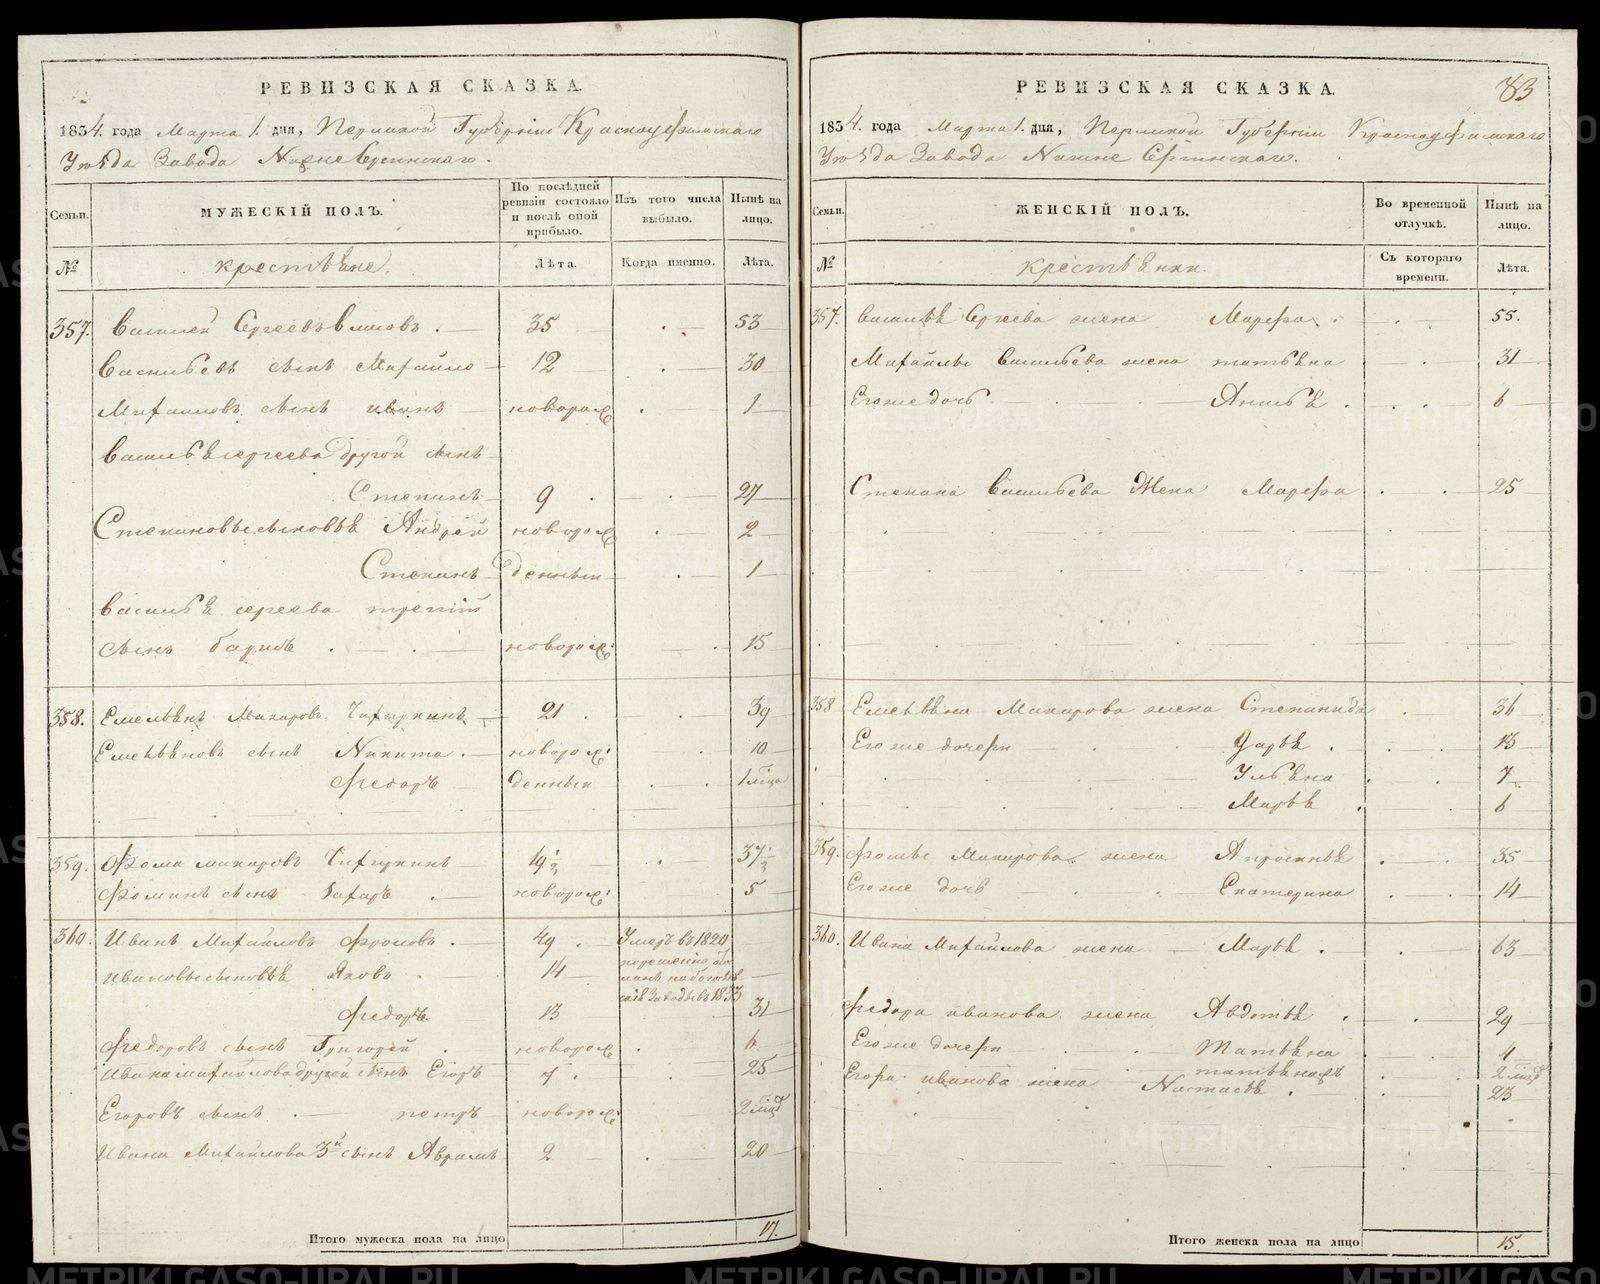 РЕВИЗСКАЯ СКАЗКА.
1834. года Марта 1. дня, Пермской Губернiи Красноуфимскаго
Уѣзда Завода Нижне Сергинскаго.
Семьи.
МУЖЕСКIЙ ПОЛЪ.
По послѣдней ревизiи состояло и послѣ оной прибыло.
Изъ того числа выбыло.
Нынѣ на лицо.
№
крестьяне.
Лѣта.
Когда именно.
Лѣта.
357. Василей Сергеевъ 35 53
Васильевъ сынъ Михайло 12 30
Михайловъ сынъ Иванъ новорож 1
Василья Сергеева другой сынъ
Степанъ 9 27
Степановы сыновья Андрей новорож 2
Степанъ денныи 1
Василья Сергеева третiй
сынъ новорож: 15
358. Емельянъ Макаровъ 21 39
Емельяновъ сынъ Никита новорож: 10
Федоръ денныи 1 мѣсца
359. Фома Макаровъ 19½ 37½
Фоминъ сынъ Захаръ новорож: 5
360. Иванъ Михайловъ Фроловъ 49 Умеръ въ 1820
Ивановы сыновья Яковъ 14 въ 1833
Федоръ 13 31
Федоровъ сынъ Григорей новорож 6
Ивана Михайлова другой сынъ Егоръ 7 25
Егоровъ сынъ петръ новорож: 2 мѣсц
Ивана Михайлова 3й сынъ Аврамъ 2 20
Итого мужеска пола на лицо 17.
83
РЕВИЗСКАЯ СКАЗКА.
1834. года Марта 1. дня, Пермской Губернiи Красноуфимскаго
Уѣзда Завода Нижне Сергинскаго.
Семьи.
ЖЕНСКIЙ ПОЛЪ.
Во временной отлучкѣ.
Нынѣ на лицо.
№
крестьянки.
Съ котораго времени.
Лѣта.
357. Василья Сергеева жена Марфа 55.
Михайлы Васильева жена татьяна 31
Его же дочь 6
Степана Васильева Жена Марфа 25
358 Емельяна Макарова жена Степанида 36
Его же дочери Дарья 13
Ульяна 7
Марья 6
359. Фомы Макарова жена 35
Его же дочь Екатерина 14
360. Ивана Михайлова жена Марья 63
Федора иванова жена Авдотья 29
Его же дочери Татьяна 4
2 мѣсц
Егора иванова жена Настасья 23
Итого женска пола на лицо 15.
METRIKI.GASO-URAL.RU